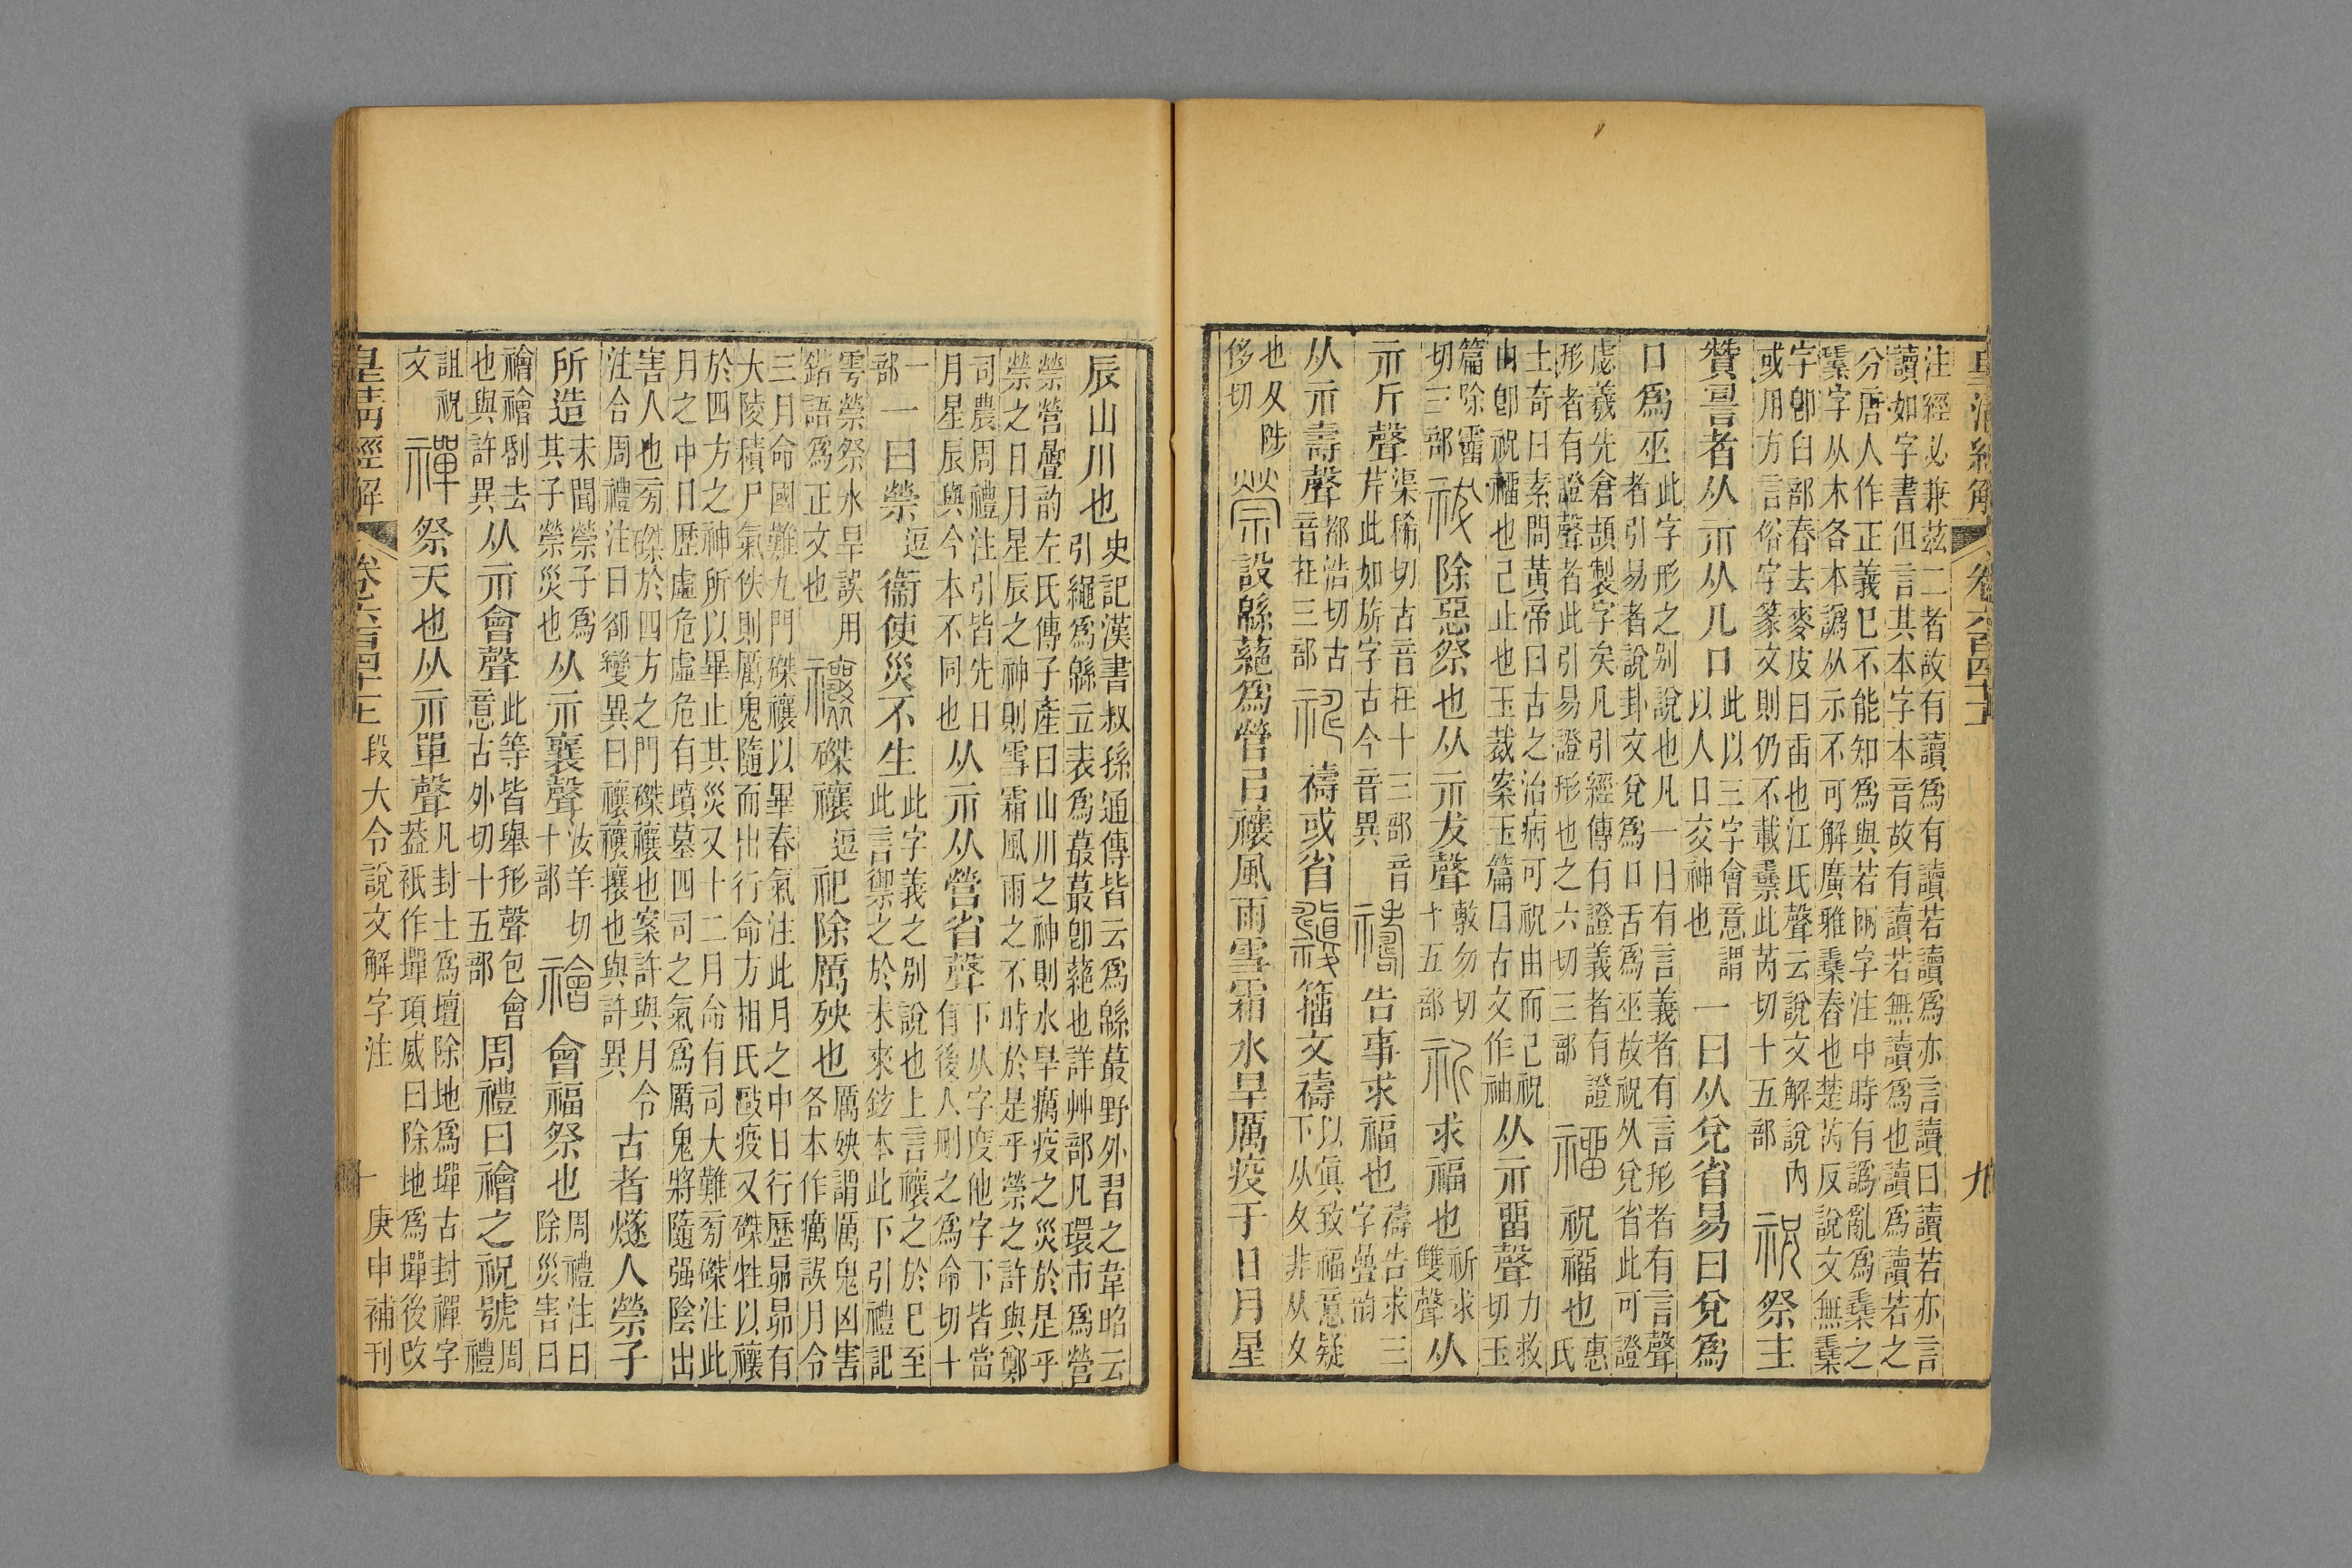 皇清經解 卷六百四十一 九
注經必兼茲二者故有讀爲有讀若讀爲亦言讀曰讀若亦言
讀如字書但言其本字本音故有讀若無讀爲也讀爲讀若之
分唐人作正義已不能知爲與若兩字注中時有譌亂爲𣝔之
𣝔字从木各本譌从示不可解廣雅𣝔舂也楚芮反說文無𣝔
字卽臼部舂去麥皮曰臿也江氏聲云說文解說內
或用方言俗字篆文則仍不載𣝔此芮切十五部
祝 祭主
贊䛐者从示从儿口
此以三字會意謂
以人口交神也
一曰从兌省易曰兌爲
口爲巫
此字形之别說也凡一曰有言義者有言形者有言聲
者引易者說卦文兌爲口舌爲巫故祝从兌省此可證
虙羲先倉頡製字矣凡引經傳有證義者有證
形者有證聲者此引易證形也之六切三部
䄂 祝䄂也
惠
氏
士奇曰素問黃帝曰古之治病可祝由而已祝
由卽祝䄂也已止也玉裁案玉篇曰古文作袖
从示畱聲
力救
切玉
篇除䨓
切三部
祓 除惡祭也从示犮聲
敷勿切
十五部
祈 求福也
祈求
雙聲
从
示斤聲
渠稀切古音在十三部音
芹此如旂字古今音異
禱 告事求福也
禱告求三
字疊韵
从示壽聲
都浩切古
音在三部
禱或省
籒文禱
以眞致福意疑
下从夂非从夊
也夂陟
侈切
禜 設緜蕝爲營㠯禳風雨雪霜水旱厲疫于日月星
辰山川也
史記漢書叔孫通傳皆云爲緜蕞野外習之韋昭云
引繩爲緜立表爲蕞蕞卽蕝也詳艸部凡環帀爲營
禜營曡韵左氏傳子產曰山川之神則水旱癘疫之災於是乎
禜之日月星辰之神則雪霜風雨之不時於是乎禜之許與鄭
司農周禮注引皆先日
月星辰與今本不同也
从示从營省聲
下从字度他字下皆當
有後人刪之爲命切十
一
部
一曰禜
逗
衞使災不生
此字義之别說也上言禳之於已至
此言禦之於未來鉉本此下引禮記
雩禜祭水旱誤用
鍇語爲正文也
禳 磔禳
逗
祀除厲殃也
厲殃謂厲鬼凶害
各本作癘誤月令
三月命國難九門磔禳以畢春氣注此月之中日行歷昴昴有
大陵積尸氣佚則厲鬼隨而出行命方相氏敺疫又磔牲以禳
於四方之神所以畢止其災又十二月命有司大難旁磔注此
月之中日歷虛危虛危有墳墓四司之氣爲厲鬼將隨强陰出
害人也旁磔於四方之門磔禳也案許與月令
注合周禮注曰卻變異曰禳禳攘也與許異
古者燧人禜子
所造
未聞禜子爲
其子禜災也
从示襄聲
汝羊切
十部
禬 會福祭也
周禮注曰
除災害曰
禬禬刮去
也與許異
从示會聲
此等皆舉形聲包會
意古外切十五部
周禮曰禬之祝號
周
禮
詛祝
文
禪 祭天也从示單聲
凡封土爲壇除地爲墠古封禪字
蓋衹作墠項威曰除地爲墠後改
皇清經解 卷六百四十一 段大令說文解字注 十 庚申補刊